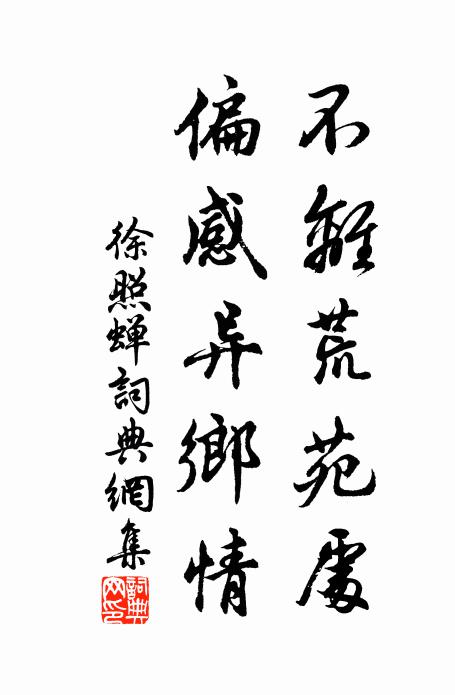 不離荒苑處
偏感异鄉情
徐照蝉詞典網集
詞典网印